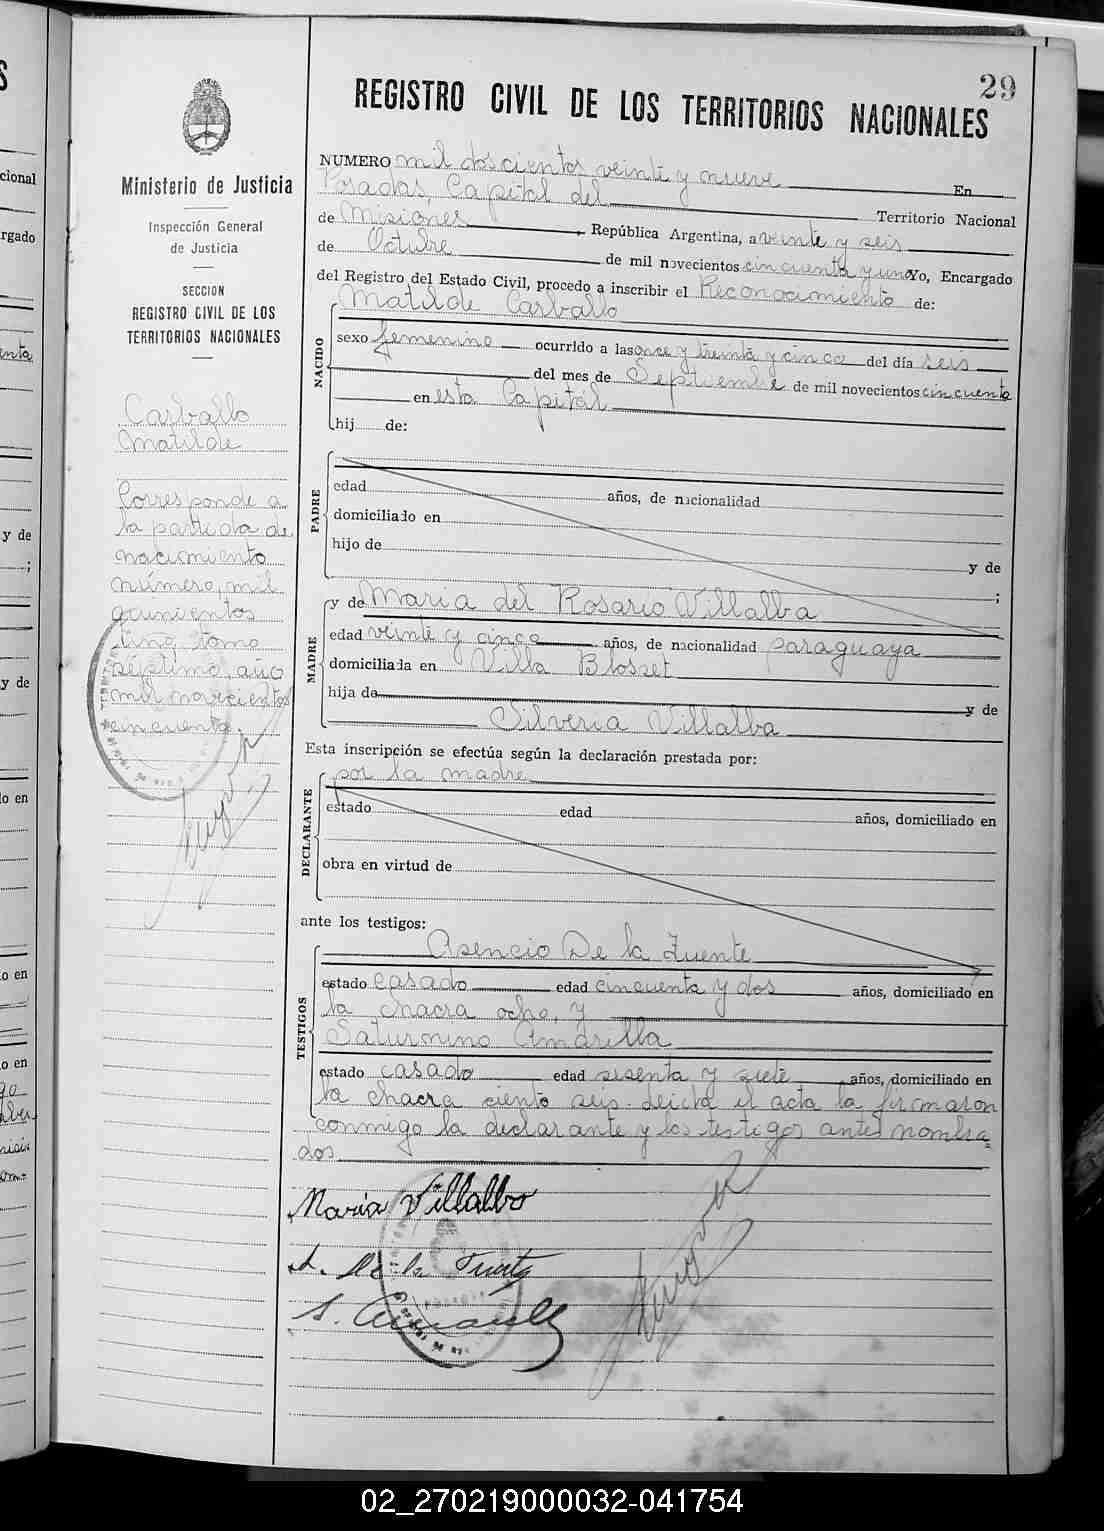 29
REGISTRO CIVIL DE LOS TERRITORIOS NACIONALES
Ministerio de Justicia
Inspección General
de Justicia
SECCION
REGISTRO CIVIL DE LOS
TERRITORIOS NACIONALES
Carballo
Matilde
Corresponde a
la partida de
nacimiento
número, mil
quinientos
uno, tomo
séptimo, año
mil novecientos
cincuenta.
NUMERO mil doscientos veinte y nueve En
Posadas, Capital del Territorio Nacional
de Misiones, República Argentina, a veinte y seis
de Octubre de mil novecientos cincuenta y uno Yo, Encargado
del Registro del Estado Civil, procedo a inscribir el Reconocimiento de:
Matilde Carballo
NACIDO
sexo femenino ocurrido a las once y treinta y cinco del día seis
del mes de Septiembre de mil novecientos cincuenta
en esta Capital
hij de:
PADRE
edad años, de nacionalidad
domiciliado en
hijo de y de
;
MADRE
y de Maria del Rosario Villalba
edad veinte y cinco años, de nacionalidad paraguaya
domiciliada en Villa Blosset
hija de y de
Silveria Villalba
Esta inscripción se efectúa según la declaración prestada por:
por la madre
DECLARANTE
estado edad años, domiciliado en
obra en virtud de
ante los testigos:
Asencio De la Fuente
TESTIGOS
estado casado edad cincuenta y dos años, domiciliado en
la chacra ocho, y
Saturnino Amarilla
estado casado edad sesenta y siete años, domiciliado en
la chacra ciento seis. Leida el acta la firmaron
conmigo la declarante y los testigos antes nombra
dos
Maria Villalba
A. De la Fuente
S. Amarilla
02_270219000032-041754